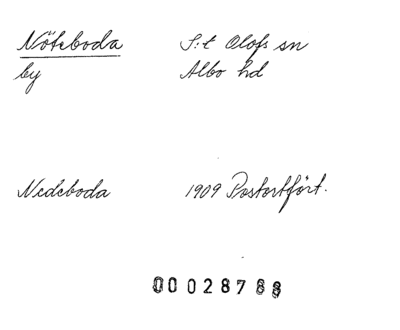 Nöteboda S:t Olofs sn
by Albo hd
Nedeboda 1909 Postortfört.
00028788